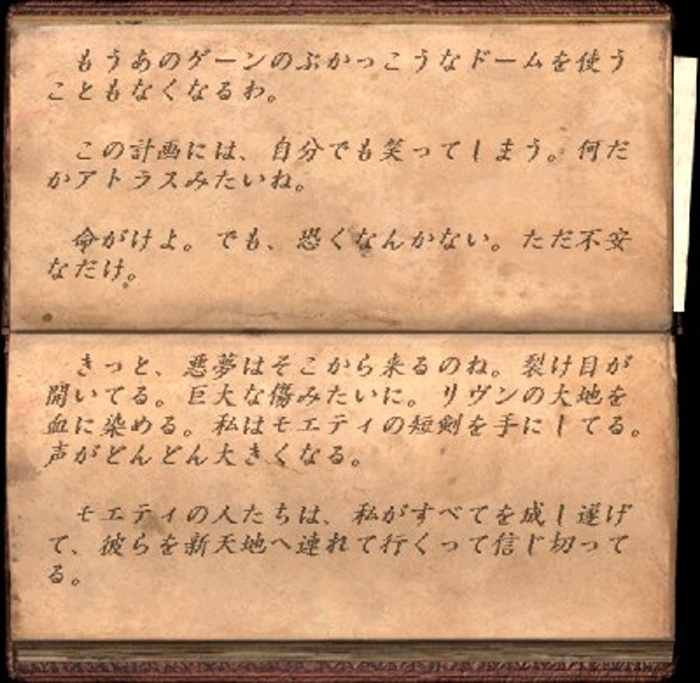 もうあのゲーンのぶかっこうなドームを使う
こともなくなるわ。
この計画には、自分でも笑ってしまう。何だ
かアトラスみたいね。
命がけよ。でも、恐くなんかない。ただ不安
なだけ。
きっと、悪夢はそこから来るのね。裂け目が
開いてる。巨大な傷みたいに。リヴンの大地を
血に染める。私はモエティの短剣を手にしてる。
声がどんどん大きくなる。
モエティの人たちは、私がすべてを成し遂げ
て、彼らを新天地へ連れて行くって信じ切って
る。